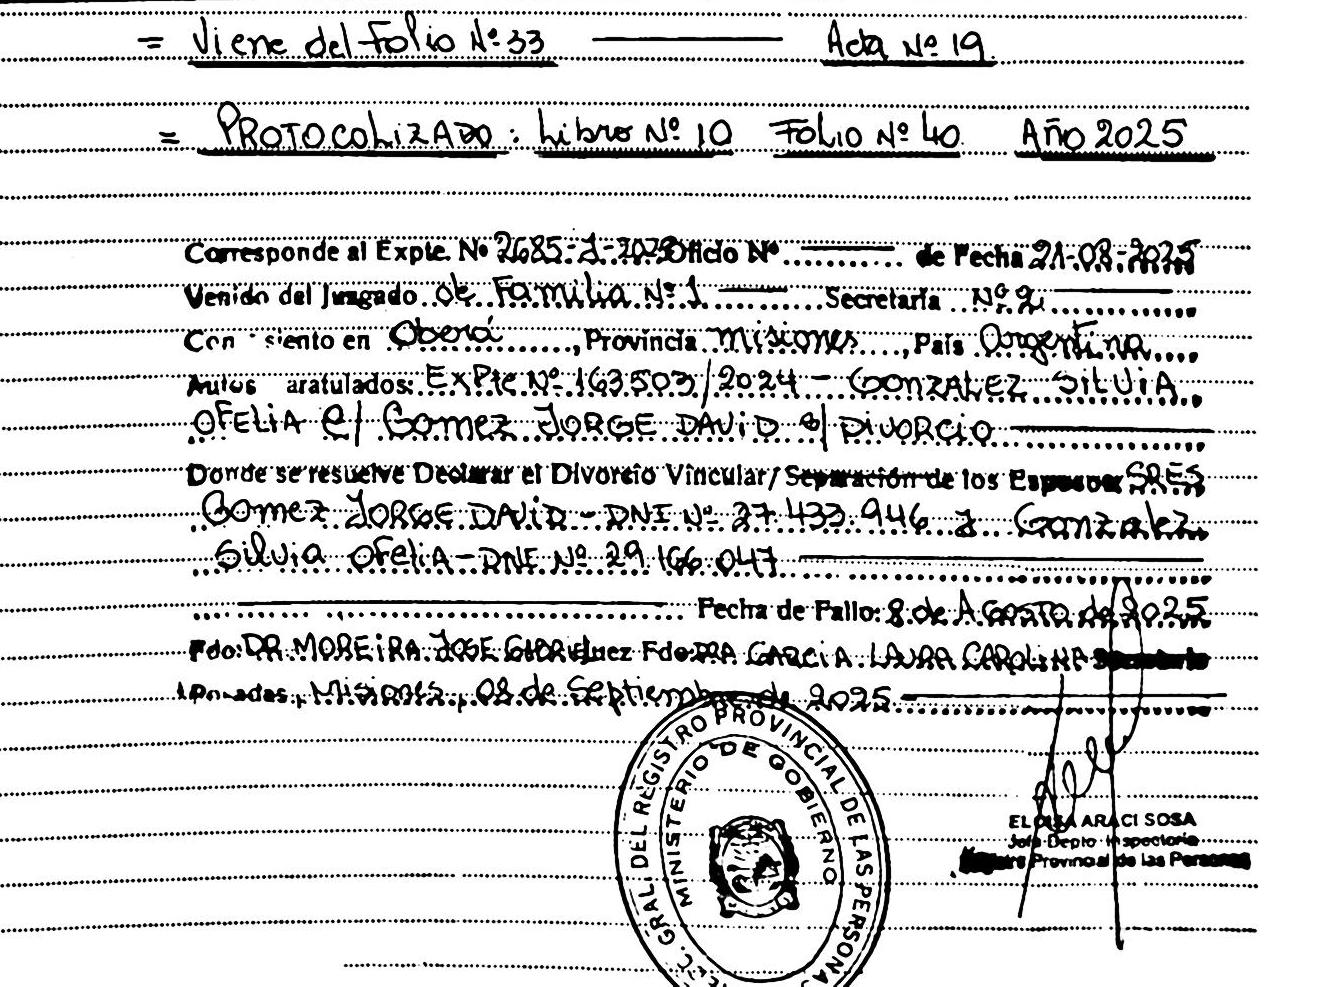 = Viene del Folio Nº 33 ——— Acta Nº 19
= PROTOCOLIZADO: Libro Nº 10 FOLIO Nº 40 AÑO 2025
Corresponde al Expte. Nº 2685-J-2025 Oficio Nº ——— de Fecha 21-08-2025
Venido del Juzgado de Familia Nº 1 ——— Secretaría Nº 2 ———
Con siento en Oberá, Provincia misiones, País Argentina
Autos aratulados: ExPte Nº 163503/2024 - GONZALEZ SILVIA
OFELIA C/ Gomez JORGE DAVID S/ DIVORCIO ———
Donde se resuelve Declarar el Divorcio Vincular/Separación de los Esposos SRES
Gomez JORGE DAVID - DNI Nº 27.433.946 y Gonzalez
Silvia OFELIA - DNI Nº 29.166.047 ———
——— Fecha de Fallo: 8 de AGOSTO de 2025
Fdo: DR MOREIRA JOSE GABRIEL Juez Fdo DRA GARCIA LAURA CAROLINA Secretario
Posadas, Misiones, 08 de Septiembre de 2025 ———
GRAL. DEL REGISTRO PROVINCIAL DE LAS PERSONAS
MINISTERIO DE GOBIERNO
ELOISA ARACI SOSA
Jefe Depto Inspectoria
Provincial de las Personas